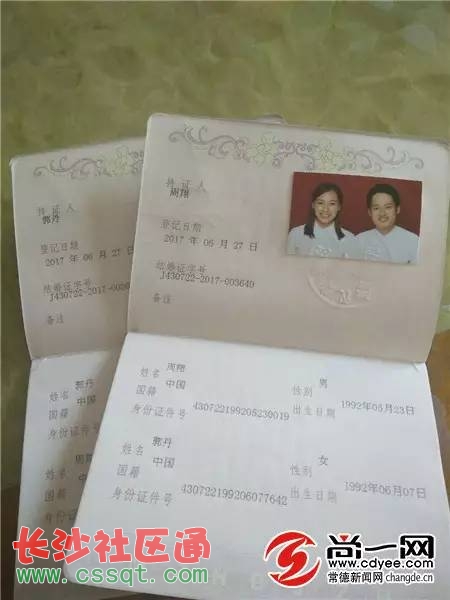 持证人
郭丹
登记日期
2017 年 月 27 日
结婚证字号
备注
姓名 郭丹
国籍 中国
身份证件号
姓名
国籍 中国
身份证件号
持证人
周翔
登记日期
2017 年 月 27 日
结婚证字号
J430722-2017-003640
备注
姓名 周翔 性别 男
国籍 中国 出生日期 1992年05月23日
身份证件号 430722199205230019
姓名 郭丹 性别 女
国籍 中国 出生日期 1992年06月07日
身份证件号 430722199206077642
长沙社区通
www.cssqt.com
尚一网
www.cdyee.com
常德新闻网 changde.cn